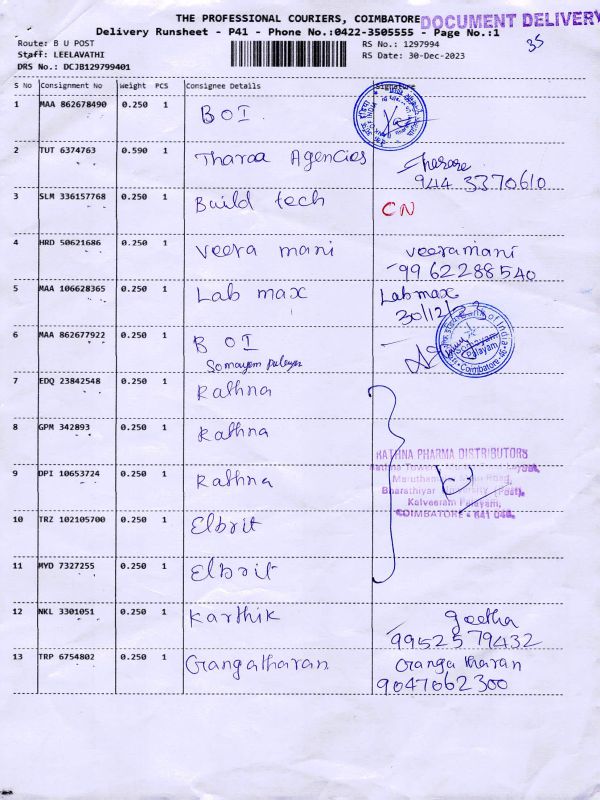 THE PROFESSIONAL COURIERS, COIMBATORE
DOCUMENT DELIVERY
Delivery Runsheet - P41 - Phone No.:0422-3505555 - Page No.:1
Route: B U POST
RS No.: 1297994
35
Staff: LEELAVATHI
RS Date: 30-Dec-2023
DRS No.: DCJB129799401
S No Consignment No Weight PCS Consignee Details Signature
1 MAA 862678490 0.250 1 BOI
2 TUT 6374763 0.590 1 Tharaa Agencies
944 3370610
3 SLM 336157768 0.250 1 Build tech CN
4 HRD 50621686 0.250 1 Veera mani veeramani
9962288540
5 MAA 106628365 0.250 1 Lab max Labmax
30/12/23
6 MAA 862677922 0.250 1 BOI
7 EDQ 23842548 0.250 1 Rathna
8 GPM 342893 0.250 1 Rathna
RATHNA PHARMA DISTRIBUTORS
9 DPI 10653724 0.250 1 Rathna
Bharathiyar University (Post),
Kalveeram Palayam,
COIMBATORE - 641 046.
10 TRZ 102105700 0.250 1 Elbrit
11 MYD 7327255 0.250 1 Elbrit
12 NKL 3301051 0.250 1 Karthik geetha
9952579432
13 TRP 6754802 0.250 1 Grangatharan Grangatharan
9047062300